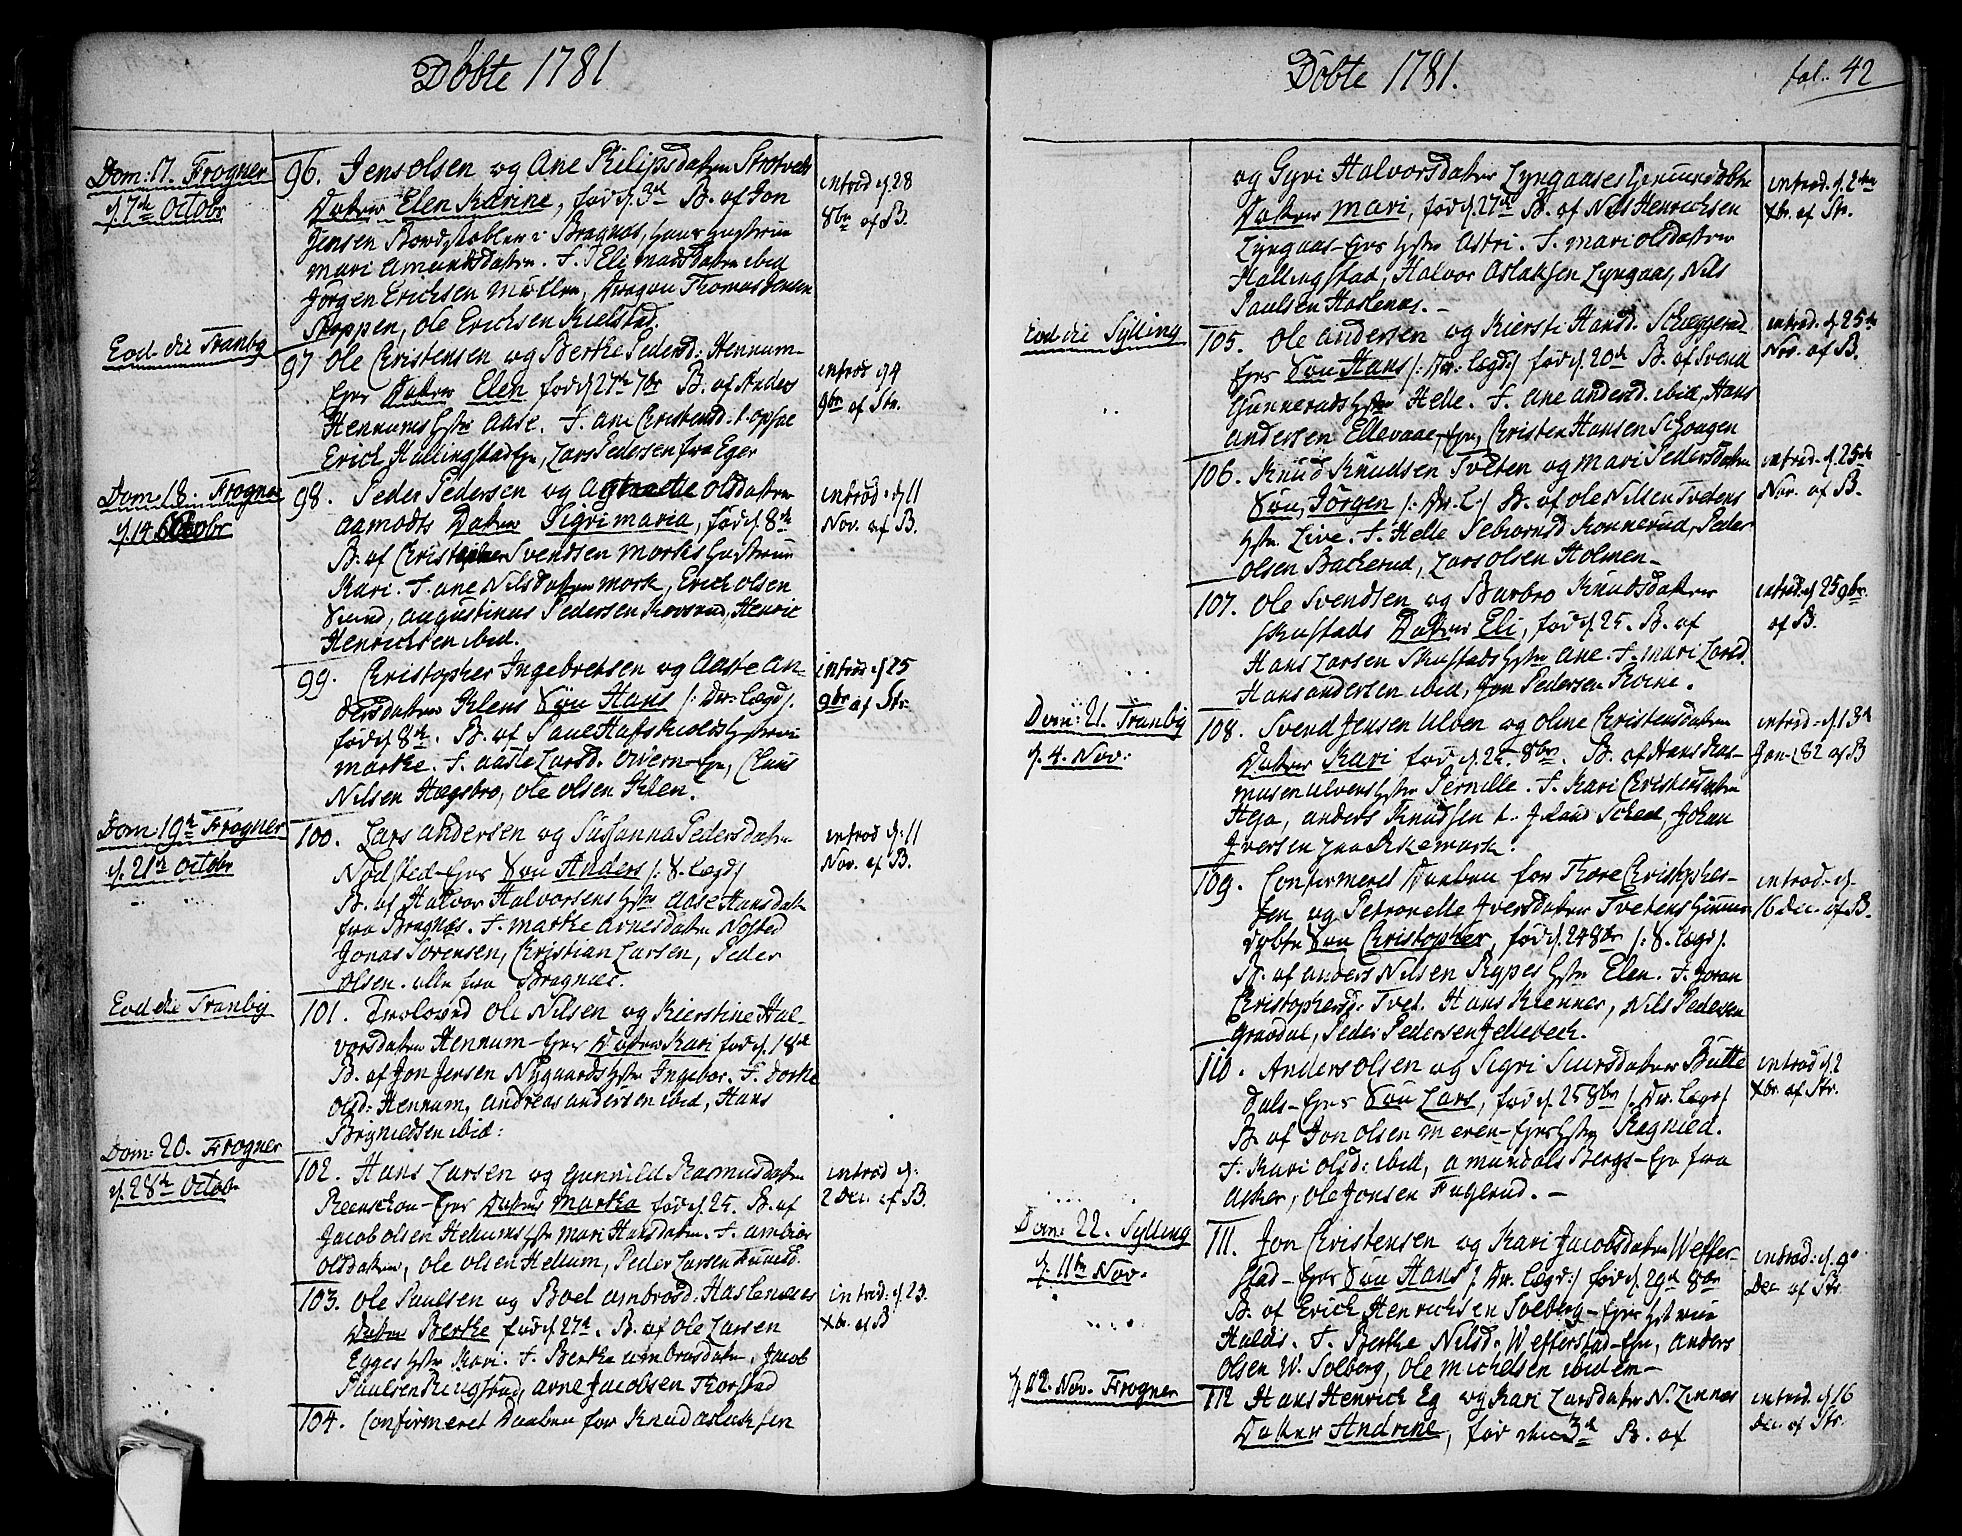 Døbte 1781
Dom: 17. Frogner
d. 7de Octobr
96. Jens Olsen og Ane Philipsdatter
Datter Elen Karine, fød d. 3d B. af Jon
Jensen Bordstabler i Bragnæs, hans Hustrue
Mari Amundsdatter. F. Eli Madsdatter ibid
Jørgen Erichsen Møller, Dragon Thomas Jensen
Stoppen, Ole Erichsen Kielstad.
introd d. 28
8br af B.
Eod. die Tranby
97 Ole Christensen og Berthe Pedersd: Hennum-
Ejer Datter Elen fød d. 27de 7br B. af Anders
Hennums Hstr Aase. F. Ane Christensd.
Erich Hallingstad Eje, Lars Pedersen fra Eger
introd d 4
9br af Str.
Dom: 18. Frogner
d. 14 Octobr
98. Peder Pedersen og Olsdatter
Aamodts Datter Sigri Maria, fød d. 8de
B. af Christopher Svendsen Morks Hustrue
Kari. F. Ane Nilsdatter Mork, Erich Olsen
Sund, Augustinus Pedersen Kovsrud, Henric
Henrichsen ibid.
introd: d 11
Nov. af B.
99. Christopher Ingebretsen og Aaste An-
dersdatter Klens Søn Hans /: Dr: Lægd /.
fød d. 8de. B. af Paul Hafskiolds Hustrue
Marthe. F. Aaste Larsd. Eje, Claus
Nilsen Hægsbro, Ole Olsen Klen.
introd: d 25
9br af Str.
Dom: 19de Frogner
d. 21de Octobr
100. Lars Andersen og Susanna Pedersdatter
Nøsted-Ejer Søn Anders /: S. Lægd /
B. af Halvor Halvorsens Hstr Aase Hansdatr
fra Bragnæs. F. Marthe Arnesdatter Nøsted
Jonas Sørensen, Christian Larsen, Peder
Olsen. alle fra Bragnæs.
introd d: 11
Nov. af B.
Eod die Tranby
101. Trolovid Ole Nilsen og Kierstine Hal-
vorsdatter Hennum-Ejer Datter Kari fød d. 18de
B. af Jon Jensen Nygaards Hstr Ingebor. F. Dorthe
Olsd: Hennum, Andreas Andersen ibid, Hans
Brynildsen ibid:
Dom: 20. Frogner
d. 28de Octob.
102. Hans Larsen og Gunnild Rasmusdatter
Reenskou-Ejer Datter Martha fød d. 25. B. af
Jacob Olsen Hellums Hstr Mari Hansdatter. F. Ambior
Olsdatter, Ole Olsen Hellum, Peder Larsen
introd d:
2 Dec. af B.
103. Ole Paulsen og Boel Ambrosd: Haslenæses
Datter Berthe fød d. 27de. B. af Ole Larsen
Egges Hstr Kari. F. Berthe Ambrosdatr, Jacob
Paulsen Ringstad, Arne Jacobsen Thorstad
introd: d. 23.
Xbr. af B
104. Confirmeret Daaben for Knud Aslachsen
Døbte 1781.
fol. 42
og Gyri Halvorsdatter Lyngaases hiemmedøbte
Datter Mari, fød d. 27de B. af Nils Henrichsen
Lyngaas-Ejer Hstr Astri. F. Mari Olsdatter
Hallingstad, Halvor Aslaksen Lyngaas, Nils
Paulsen Haslenæs.-
introd. d. 2den
Xbr. af Str.
Eod die Sylling
105. Ole Andersen og Kiersti Hansd. Skeggerud
Ejer Søn Hans /: Dr: Lægd: / fød d. 20de B. af Svend
Gunneruds Hstr Helle. F. Ane Andersd. ibid, Hans
Andersen Ellevaae-Eje, Christen Hansen Schougen
introd. d. 25de
Nov. af B.
106. Knud Knudsen Tveten og Mari Pedersdatter
Søn Jørgen /: Dr. L: / B. af Ole Nilsen Tvetens
Hstr Live. F. Helle Tebiørnsd Konnerud, Peder
Olsen Backerud, Lars Olsen Holmen-
introd. d. 25de
Nov. af B.
107. Ole Svendsen og Barbro Knudsdatter
Skustads Datter Eli, fød d. 25. B. af
Hans Larsen Skustads Hstr Ane. F. Mari Larsd.
Hans Andersen ibid, Jon Pedersen
introd. d 25 9br.
af B.
Dom: 21. Tranby
d. 4. Nov:
108. Svend Jensen Ulven og Oline Christensdatter
Datter Kari fød d. 22. 8br. B. af Hans Ras-
musen Ulvens Hstr Pernille. F. Kari Christensdatter
Heja, Anders Knudsen, Johan
Iversen paa
introd. d 13de
Jan-82 af B
109. Confirmeret Daaben for Thore Christopher-
sen og Petronelle Iversdatter Tvetens hiemme-
døbte Søn Christopher, fød d. 24 8br /: S. Lægd /.
B. af Anders Nilsen Rypes Hstr Elen. F. Joran
Christophersd: Tvet. Hans Kienner, Nils Pedersen
Gravdal, Peder Pedersen Jellebeck.
introd. d.
16 Dec. af B.
110. Anders Olsen og Sigri Siursdatter Butte
dals-Ejer Søn Lars, fød d. 25 8br /: Dr. Lægd /
B. af Jon Olsen Meren-Ejer Hstr Ragnild.
F. Kari Olsd: ibid, Amund Bergs-Eje fra
Asker, Ole Jonsen Fuglerud.-
introd d. 2
Xbr. af Str.
Dom: 22. Sylling
d. 11te Nov.
111. Jon Christensen og Kari Jacobsdatter Weffer-
stad-Ejer Søn Hans /: Dr. Lægd: / fød d. 29de 8br
B. af Erich Henrichsen Solberg-Ejer Hstrue
Haldis. F. Berthe Nilsd: Wefferstad-Eje, Anders
Olsen W. Solberg, Ole Michelsen ibidem-
introd: d. 9
Dec. af Str.
d. 12. Nov. Frogner
112 Hans Henrich Eg og Kari Larsdatter N. Linnes
Datter Andrine, fød den 3d B. af
introd. d 16
Dec. af Str.